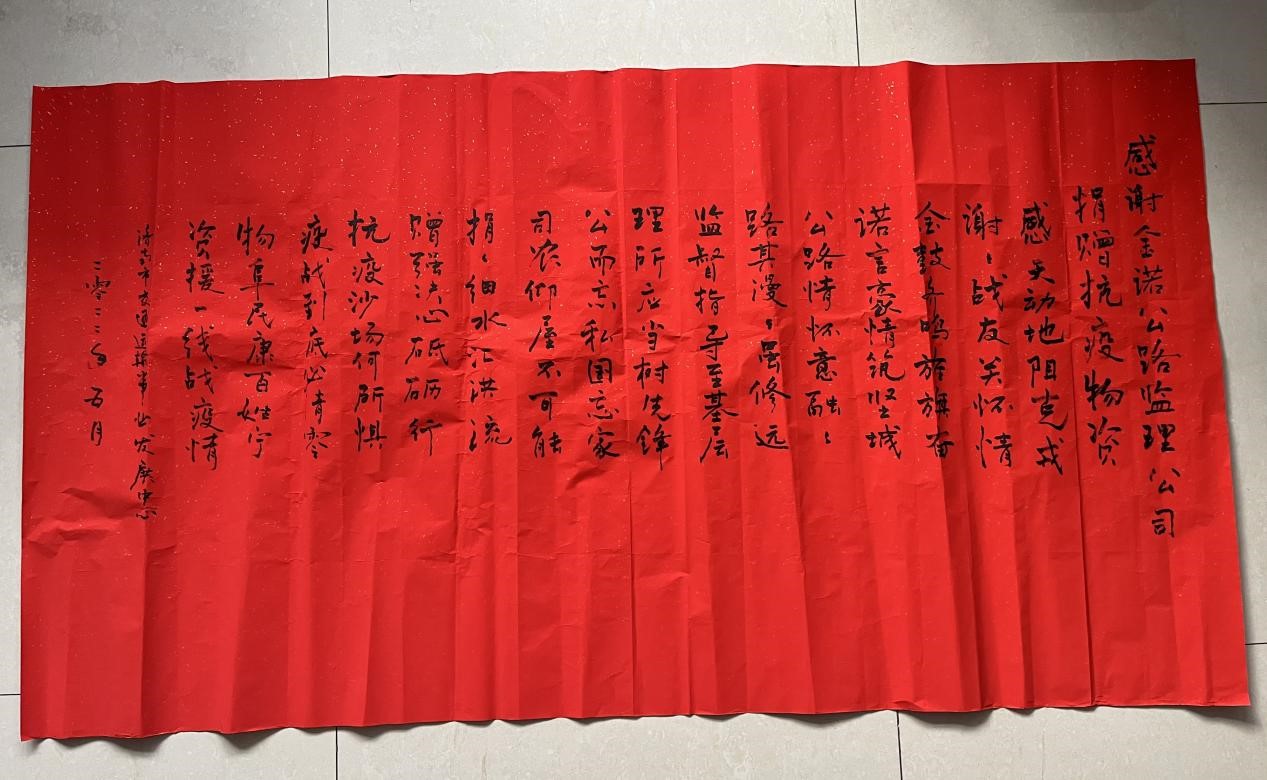 感谢金诺公路监理公司
捐赠抗疫物资
感天动地阻克戎
谢谢战友关怀情
金鼓齐鸣旌旗奋
诺言豪情筑坚城
公路情怀意融融
路其漫漫虽修远
监督指导至基层
理所应当树先锋
公而忘私国忘家
司农仰屋不可能
捐捐细水汇洪流
赠强决心砥砺行
抗疫沙场何所惧
疫战到底必清零
物阜民康百姓宁
资援一线战疫情
市交通运输事业发展中心
二零二二年五月